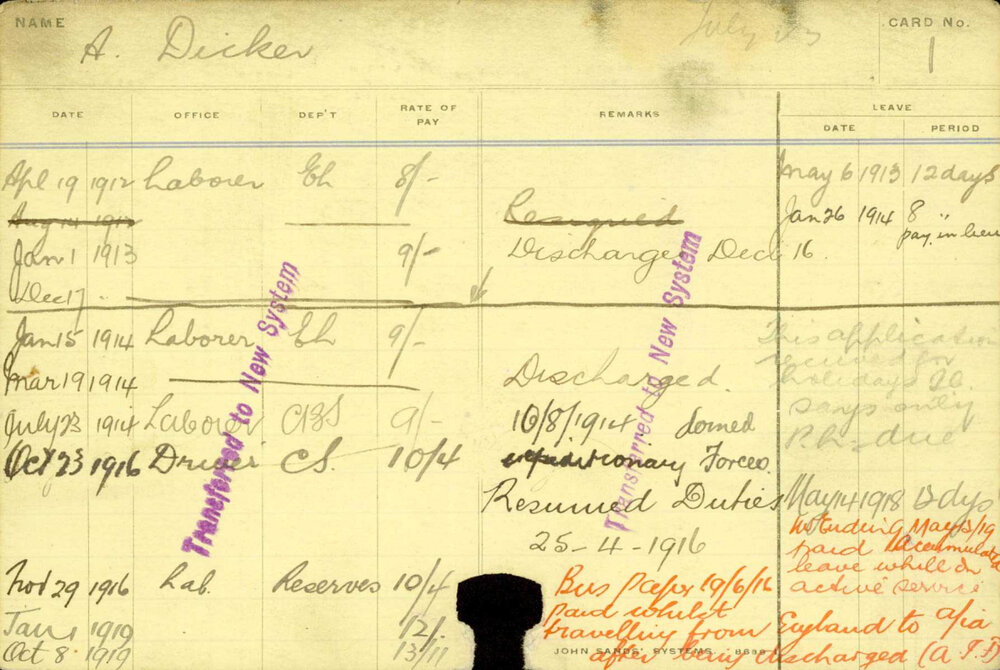 NAME A. Dicker July 23 CARD No. 1
DATE OFFICE DEP'T RATE OF PAY REMARKS LEAVE
DATE PERIOD
Apl 19 1912 Laborer Eh 8/- May 6 1913 12 days
Aug 14 1912 Resigned Jan 26 1914 8 " pay in lieu
Jan 1 1913 9/- Discharged Dec 16.
Dec 17
Jan 15 1914 Laborer Eh 9/- This application
received for
Mar 19 1914 Discharged. holidays
July 23 1914 Laborer 9/- 10/8/1914 Joined days only
P.h. due
Oct 23 1916 Driver CS. 10/4 expeditionary Forces.
Resumed Duties May 14 1918 12 dys
25-4-1916 ending May 3/19
paid accumulated
leave while on
Nov 29 1916 Lab. Reserves 10/4 Bus paper 19/6/16 active service
paid whilst
Jan 1 1919 12/- travelling from England to a/ia
Oct 8 1919 13/11 after being discharged (A.I.F)
JOHN SANDS' SYSTEMS.
Transferred to New System
Transferred to New System